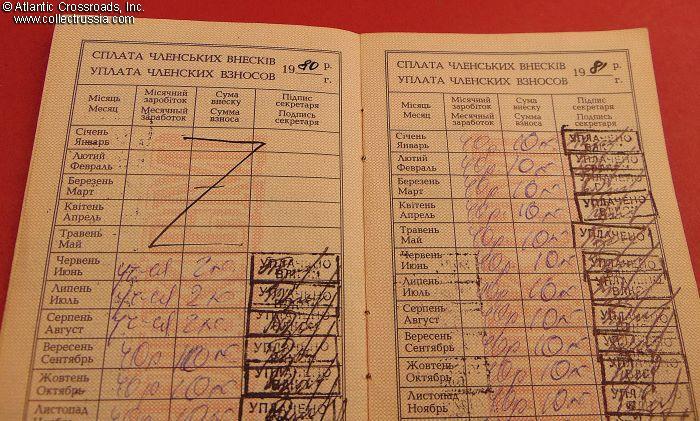 © Atlantic Crossroads, Inc.
www.collectrussia.com
СПЛАТА ЧЛЕНСЬКИХ ВНЕСКІВ
УПЛАТА ЧЛЕНСКИХ ВЗНОСОВ
1980 р.
г.
Місяць
Месяц
Місячний
заробіток
Месячный
заработок
Сума
внеску
Сумма
взноса
Підпис
секретаря
Подпись
секретаря
Січень
Январь
Лютий
Февраль
Березень
Март
Квітень
Апрель
Травень
Май
Червень
Июнь
2 ко
УПЛАЧЕНО
Липень
Июль
2 ко
УПЛАЧЕНО
Серпень
Август
2 ко
УПЛАЧЕНО
Вересень
Сентябрь
40р 10к
УПЛАЧЕНО
Жовтень
Октябрь
40р 10к
УПЛАЧЕНО
Листопад
40р 10к
УПЛАЧЕНО
СПЛАТА ЧЛЕНСЬКИХ ВНЕСКІВ
УПЛАТА ЧЛЕНСКИХ ВЗНОСОВ
1981 р.
г.
Місяць
Месяц
Місячний
заробіток
Месячный
заработок
Сума
внеску
Сумма
взноса
Підпис
секретаря
Подпись
секретаря
Січень
Январь
40р 10к
УПЛАЧЕНО
Лютий
Февраль
40р 10к
УПЛАЧЕНО
Березень
Март
40р 10к
УПЛАЧЕНО
Квітень
Апрель
40р 10к
УПЛАЧЕНО
Травень
Май
40р 10к
УПЛАЧЕНО
Червень
Июнь
40р 10к
УПЛАЧЕНО
Липень
Июль
40р 10к
УПЛАЧЕНО
Серпень
Август
40р 10к
УПЛАЧЕНО
Вересень
Сентябрь
40р 10к
УПЛАЧЕНО
Жовтень
Октябрь
40р 10к
УПЛАЧЕНО
Листопад
Ноябрь
40р 10к
УПЛАЧЕНО